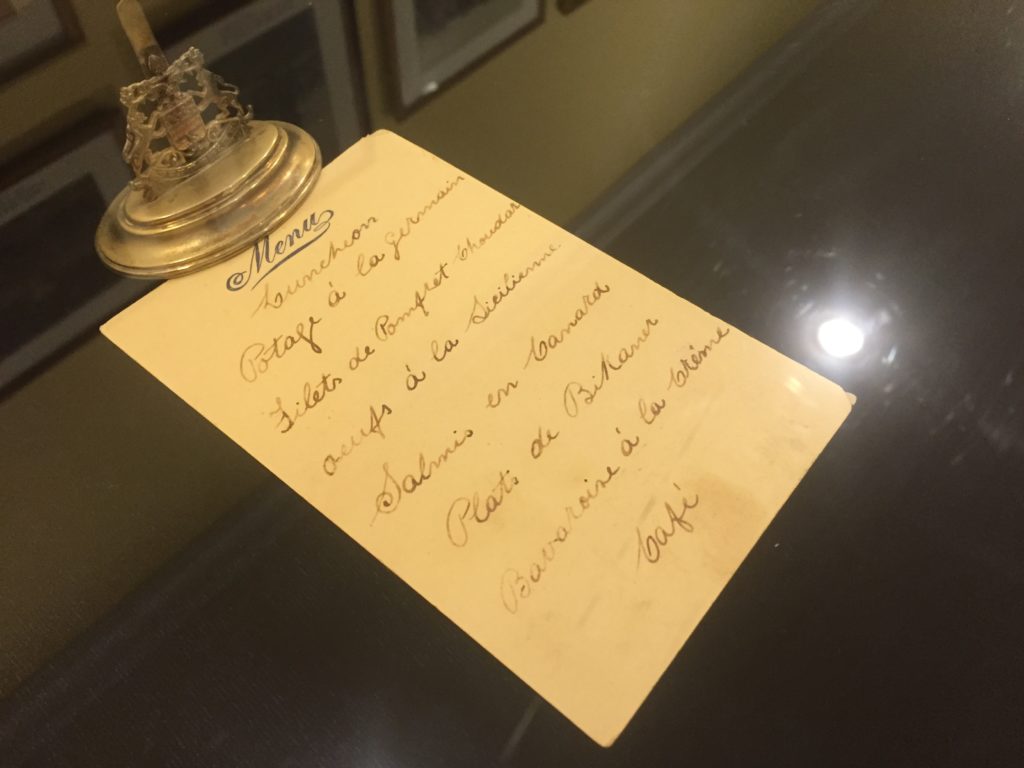 Menu
Luncheon
Potage à la germain
Filets de Pomfret Choudar
oeufs à la Sicilienne.
Salmis en Canard
Plats de Bikaner
Bavaroise à la Crême
Café